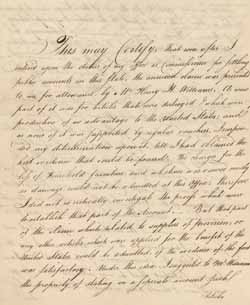 This may Certify, that soon after I
entered upon the duties of my Office as Commissioner for settling
public accounts in this State, the annexed claim was presented
to me for allowance by Mr Henry H. Williams. As one
part of it was for Articles that were destroyed & which was
productive of no advantage to the United States, and
as none of it was supported by regular vouchers, I suspended
my determination upon it, till I had obtained the
best evidence that could be procured. The charge for the
loss of Household furniture and whatever was claimed merely
as damage could not be admitted at this Office, therefore
I did not so critically investigate the proofs which were
to establish that part of the Account. But that part
of the claim which related to supplies of provisions, or
any other articles which were applied for the benefit of the
United States could be admitted, if the evidence of the facts
was satisfactory. Under this idea I suggested to Mr Williams
the propriety of stating on a separate account such